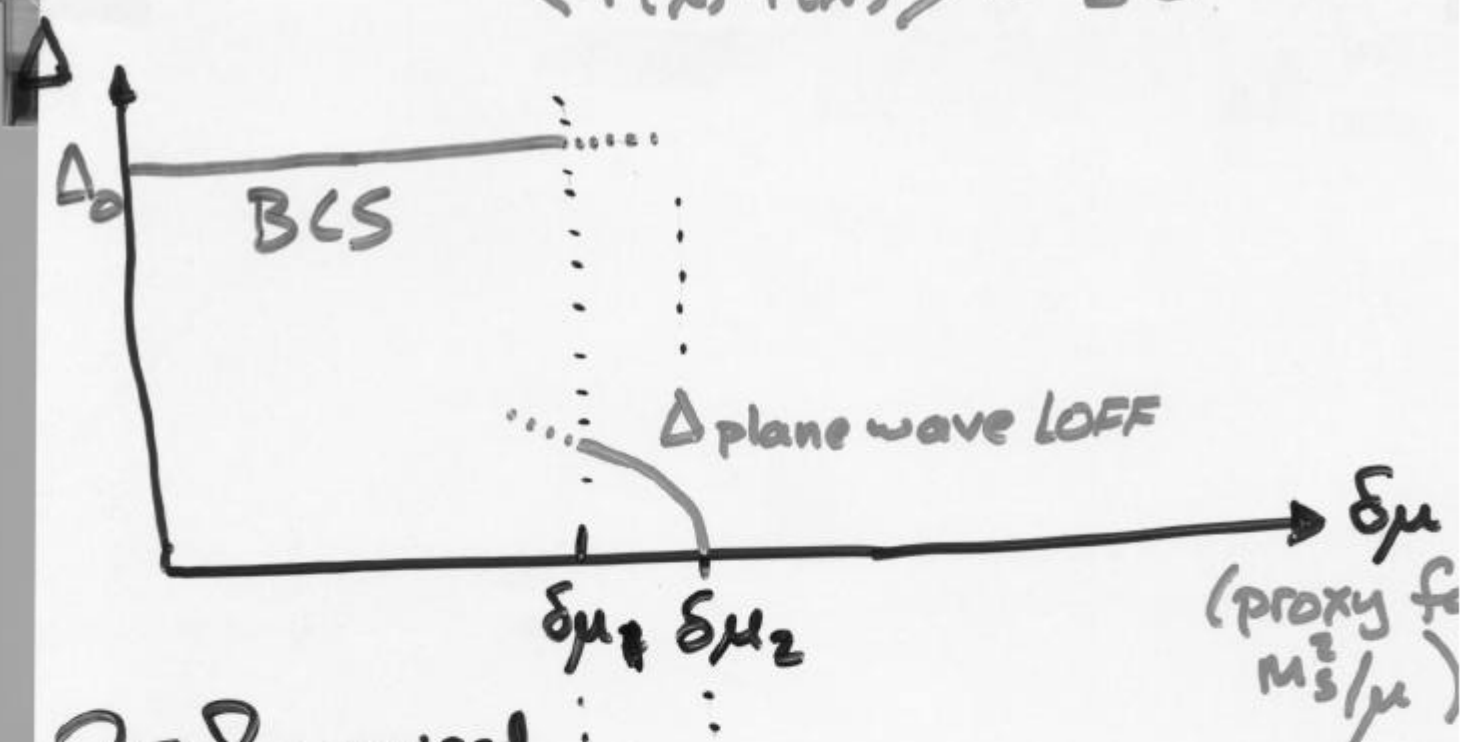 Δ
Δ₀
BCS
Δ plane wave LOFF
δμ
δμ₁ δμ₂
(proxy
Mₛ²/μ)